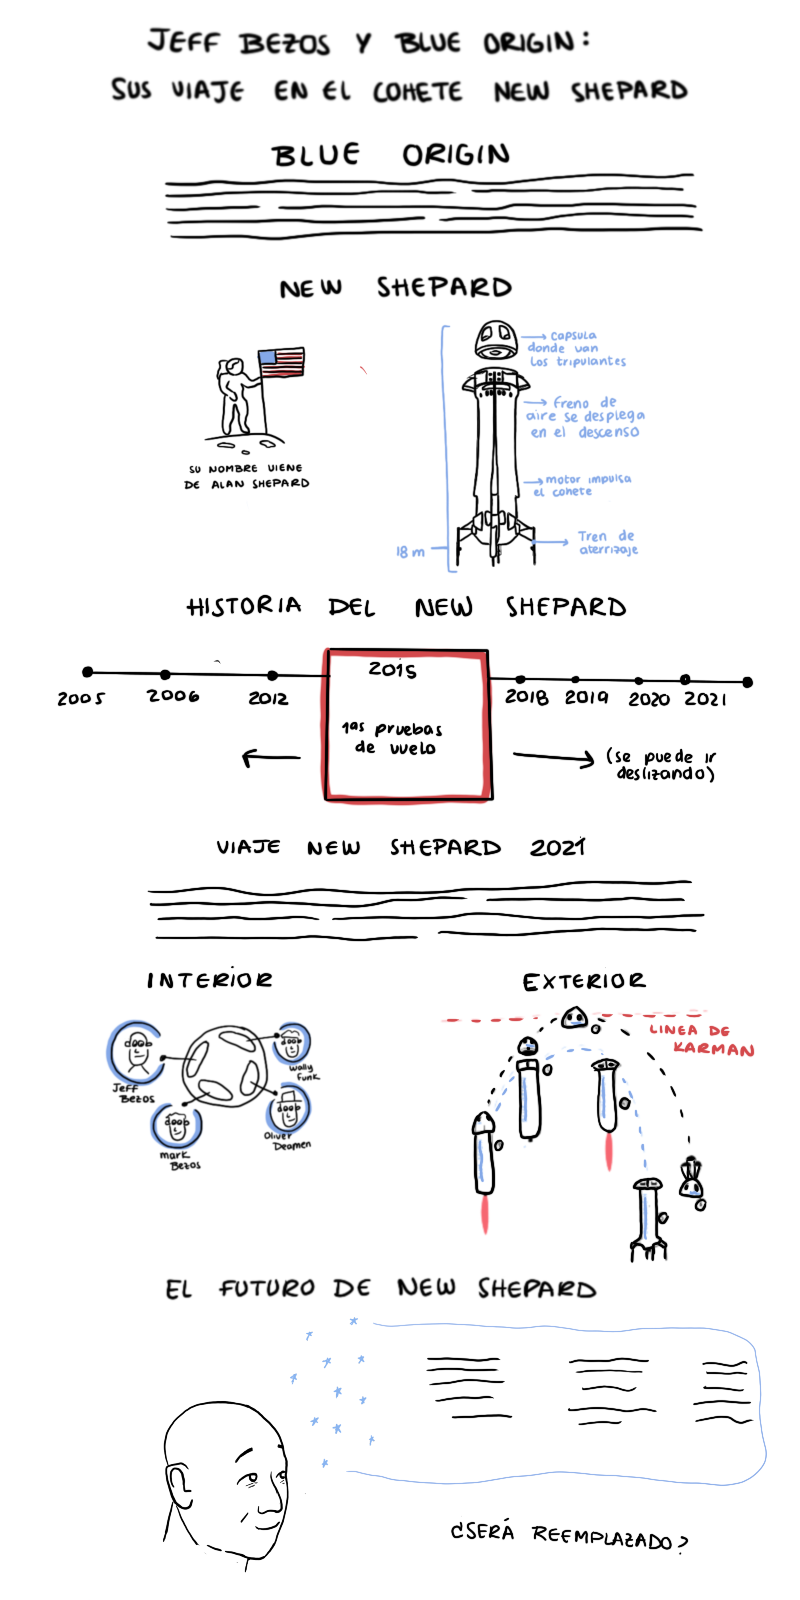 JEFF BEZOS Y BLUE ORIGIN:
SUS VIAJE EN EL COHETE NEW SHEPARD
BLUE ORIGIN
NEW SHEPARD
SU NOMBRE VIENE
DE ALAN SHEPARD
capsula
donde van
los tripulantes
freno de
aire se desplega
en el descenso
motor impulsa
el cohete
Tren de
aterrizaje
18 m
HISTORIA DEL NEW SHEPARD
2005
2006
2012
2015
1as pruebas
de vuelo
2018
2019
2020
2021
(se puede ir
deslizando)
VIAJE NEW SHEPARD 2021
INTERIOR
EXTERIOR
Jeff
Bezos
mark
Bezos
Wally
Funk
Oliver
Deamen
LINEA DE
KARMAN
EL FUTURO DE NEW SHEPARD
¿SERÁ REEMPLAZADO?